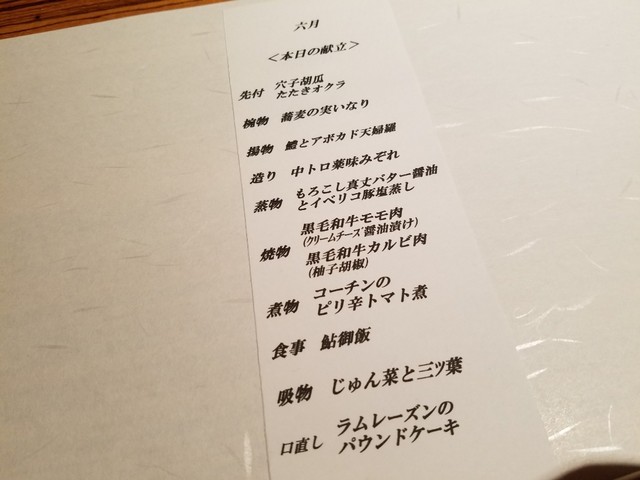 六月
＜本日の献立＞
先付 穴子胡瓜
たたきオクラ
椀物 蕎麦の実いなり
揚物 鱧とアボカド天婦羅
造り 中トロ薬味みぞれ
蒸物 もろこし真丈バター醤油
とイベリコ豚塩蒸し
焼物 黒毛和牛モモ肉
(クリームチーズ醤油漬け)
黒毛和牛カルビ肉
(柚子胡椒)
煮物 コーチンの
ピリ辛トマト煮
食事 鮎御飯
吸物 じゅん菜と三ツ葉
口直し ラムレーズンの
パウンドケーキ